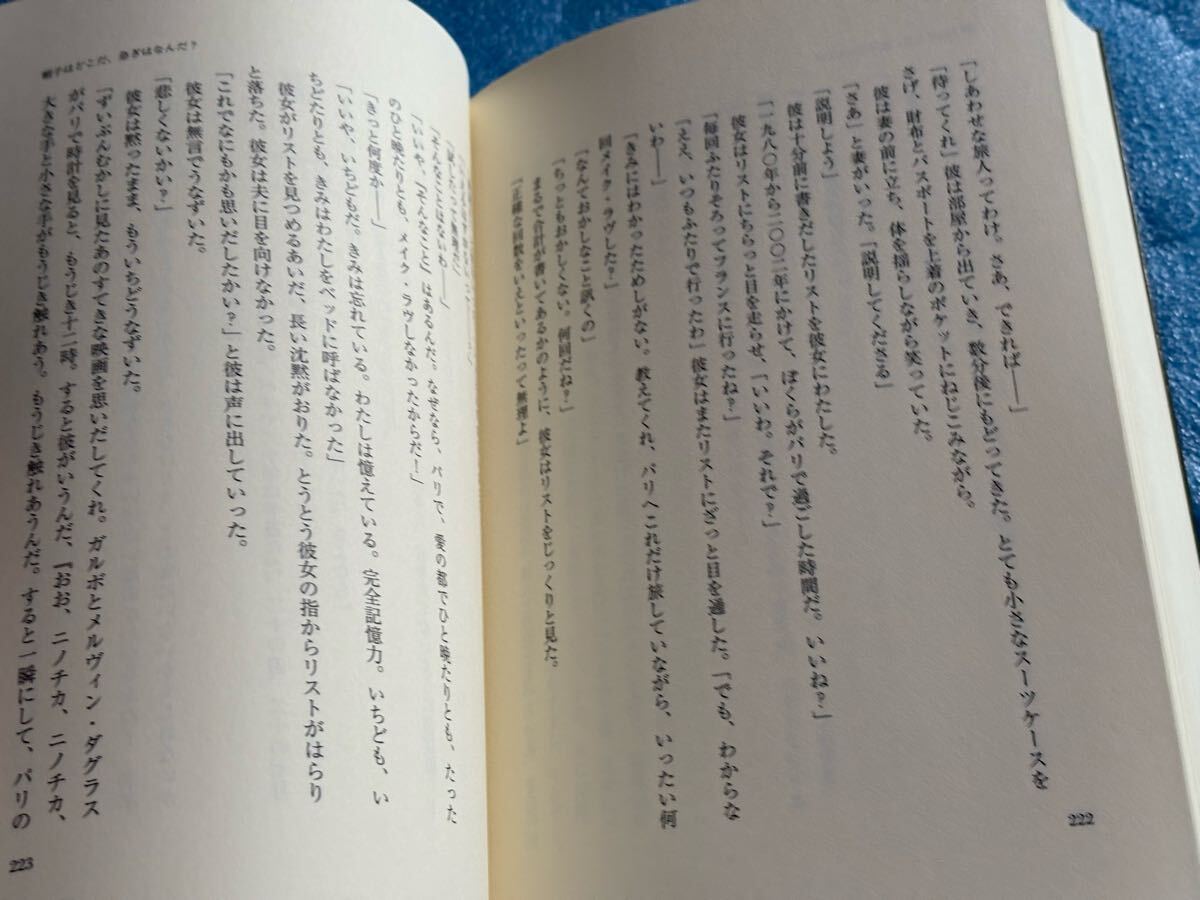 「しあわせな旅人ってわけ。さあ、できれば――」
「待ってくれ」彼は部屋から出ていき、数分後にもどってきた。とても小さなスーツケースを
さげ、財布とパスポートを上着のポケットにねじこみながら。
彼は妻の前に立ち、体を揺らしながら笑っていた。
「さあ」と妻がいった。「説明してくださる」
「説明しよう」
彼は十分前に書きだしたリストを彼女にわたした。
「一九八〇年から二〇〇二年にかけて、ぼくらがパリで過ごした時間だ。いいね？」
彼女はリストにちらっと目を走らせ、「いいわ。それで？」
「毎回ふたりそろってフランスに行ったね？」
「ええ、いつもふたりで行ったわ」彼女はまたリストにざっと目を通した。「でも、わからな
いわ――」
「きみにはわかったためしがない。教えてくれ、パリへこれだけ旅していながら、いったい何
回メイク・ラヴした？」
「なんておかしなこと訊くの」
「ちっともおかしくない。何回だね？」
まるで合計が書いてあるかのように、彼女はリストをじっくりと見た。
「正確な回数をいえといったって無理よ」
222
帽子はどこだ、急ぎはなんだ？
「そんなことはないわ――」
「いいや、『そんなこと』はあるんだ。なぜなら、パリで、愛の都でひと晩たりとも、たった
のひと晩たりとも、メイク・ラヴしなかったからだ！」
「きっと何度か――」
「いいや、いちどもだ。きみは忘れている。わたしは憶えている。完全記憶力。いちども、い
ちどたりとも、きみはわたしをベッドに呼ばなかった」
彼女がリストを見つめるあいだ、長い沈黙がおりた。とうとう彼女の指からリストがはらり
と落ちた。彼女は夫に目を向けなかった。
「これでなにもかも思いだしたかい？」と彼は声に出していった。
彼女は無言でうなずいた。
「悲しくないかい？」
彼女は黙ったまま、もういちどうなずいた。
「ずいぶんむかしに見たあのすてきな映画を思いだしてくれ。ガルボとメルヴィン・ダグラス
がパリで時計を見ると、もうじき十二時。すると彼がいうんだ、『おお、ニノチカ、ニノチカ、
大きな手と小さな手がもうじき触れあう。もうじき触れあうんだ。すると一瞬にして、パリの
223